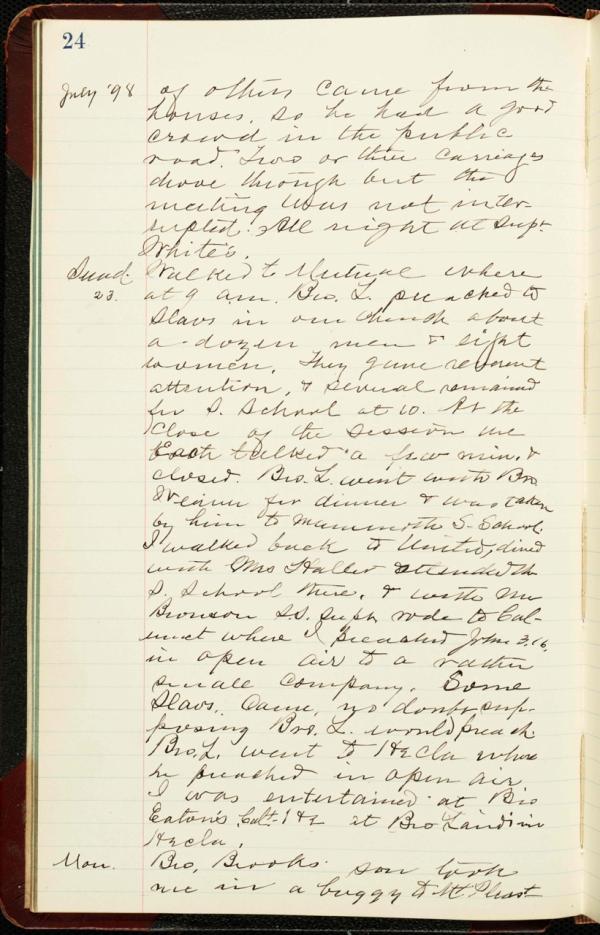 24
July '98 of others came from the
houses, so he had a good
crowd in the public
road. Two or three carriages
drove through but the
meeting was not inter-
rupted. All night at Supt.
White's.
Sund. 23. Walked to Mutual where
at 9 a.m. Bro. L. preached to
Slavs in our church about
a dozen men & eight
women. They gave reverent
attention, & several remained
for S. School at 10. At the
close of the session we
Each talked a few min. &
closed. Bro. L. went with Bro
for dinner & was taken
by him to Mammoth S-School.
I walked back to United, dined
with Mrs Haller attended the
S. School there, & with Mr
Bronson S.S. Supt. rode to Cal-
umet where I preached John 3.16,
in open air to a rather
small company. Some
Slavs came, no doubt sup-
posing Bro. L. would preach.
Bro. L. went to Hecla where
he preached in open air.
I was entertained at Bro
Eaton's, Calt. & He at Bro in
Hecla.
Mon. Bro. Brooks son took
me in a buggy to Mt. Pleast